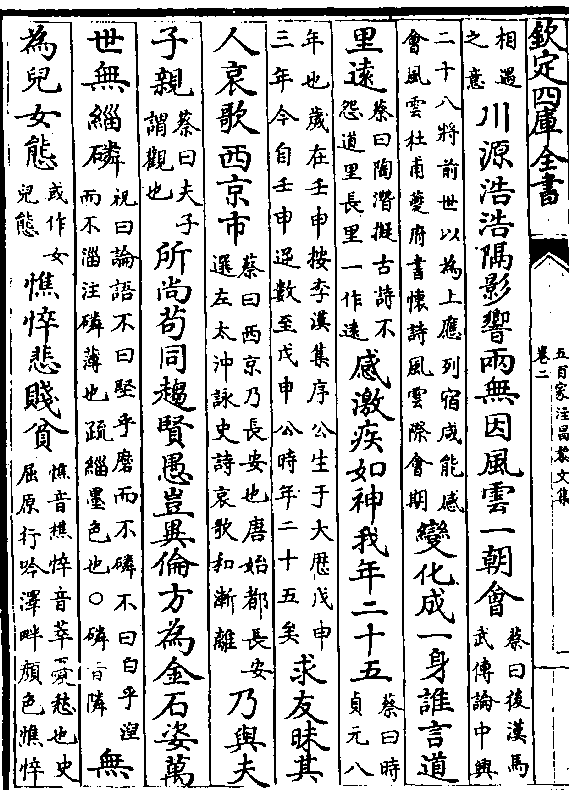 欽定四庫全書
五百家注昌黎文集
卷二
相遇
之意
川源浩浩隔影響兩無因風雲一朝會
蔡曰後漢馬
武傳論中興
二十八將前世以為上應列宿咸能感
會風雲杜甫䕫府書懷詩風雲際會期
變化成一身誰言道
里遠
蔡曰陶潛擬古詩不
怨道里長里一作遠
感激疾如神我年二十五
蔡曰時
貞元八
年也歲在壬申按李漢集序公生于大厯戊申
三年今自壬申逆數至戊申公時年二十五矣
求友昧其
人哀歌西京市
蔡曰西京乃長安也唐始都長安
選左太沖詠史詩哀歌和漸離
乃與夫
子親
蔡曰夫子
謂觀也
所尚苟同趨賢愚豈異倫方為金石姿萬
世無緇磷
祝曰論語不曰堅乎磨而不磷不曰白乎湼
而不淄注磷薄也疏緇墨色也○磷音隣
無
為兒女態
或作女
兒態
憔悴悲賤貧
憔音樵悴音萃憂愁也史
屈原行吟澤畔顔色憔悴